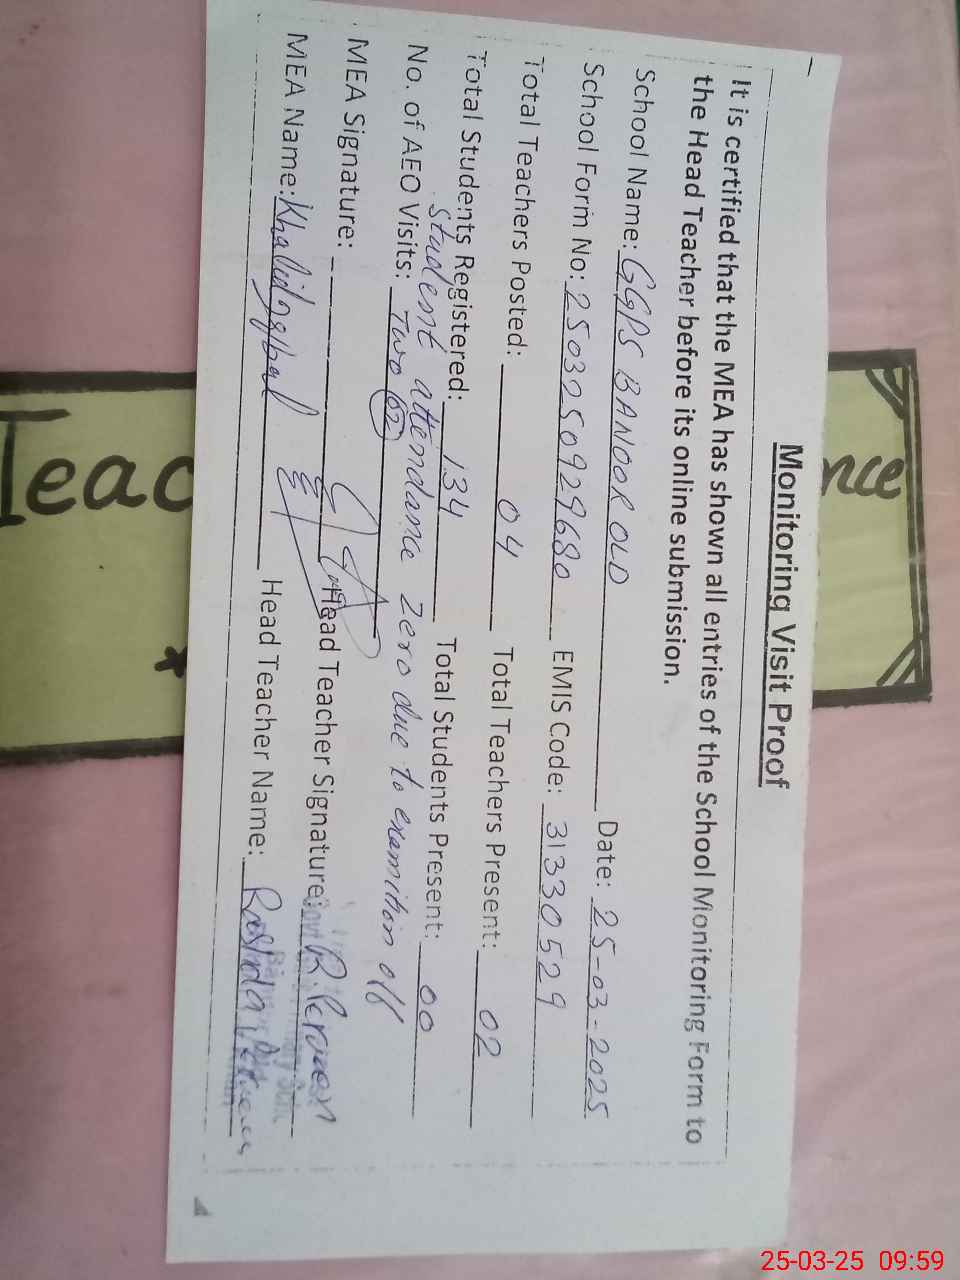 Monitoring Visit Proof
It is certified that the MEA has shown all entries of the School Monitoring Form to
the Head Teacher before its online submission.
School Name: GGPS BANOOR OLD Date: 25-03-2025
School Form No: 2503250929680 EMIS Code: 31330529
Total Teachers Posted: 04 Total Teachers Present: 02
Total Students Registered: 134 Total Students Present: 00
Student attendance zero due to examition off
No. of AEO Visits: Two 02
MEA Signature: Head Teacher Signature: R. Perveen
MEA Name: Khalid Iqbal Head Teacher Name: Rashda
Teac
nce
25-03-25 09:59